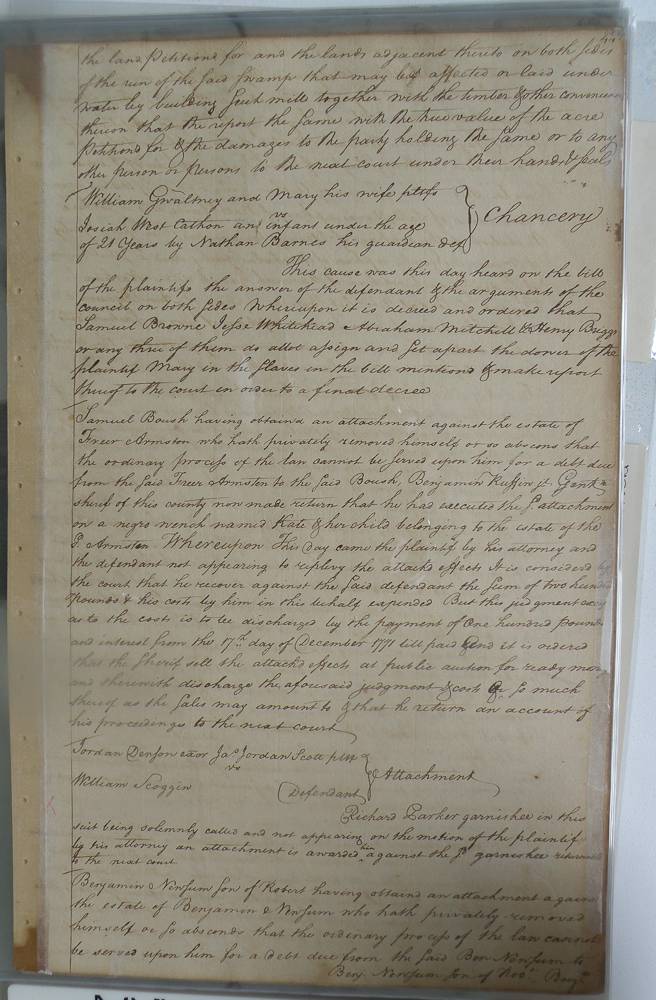 the land Petitiond for and the lands adjacent thereto on both sides
of the run of the said swamp that may be affected or laid under
water by building such mill together with the timber & other convenien
thereon that the report the same with the true value of the acre
Petitiond for & the damages to the party holding the same or to any
other person or persons to the next court under their hands & seals
William Gwaltney and Mary his wife pltfs
vs
Josiah West Cathon an infant under the age
of 21 Years by Nathan Barnes his guardian def
Chancery
This cause was this day heard on the bill
of the plaintifs the answer of the defendant & the arguments of the
council on both sides Whereupon it is decreed and ordered that
Samuel Browne Jesse Whitehead Abraham Mitchell & Henry Briggs
or any three of them do allot assign and set apart the dower of the
plaintif Mary in the slaves in the bill mentiond & make report
thereof to the court in order to a final decree
Samuel Boush having obtaind an attachment against the estate of
Freer Armston who hath privately removed himself or so absconds that
the ordinary process of the law cannot be served upon him for a debt due
from the said Freer Armston to the said Boush, Benjamin Ruffin jr Gent
sherif of this county now made return that he had executed the sd attachment
on a negro wench named Kate & her child belonging to the estate of the
sd Armston Whereupon This Day came the plaintif by his attorney and
the defendant not appearing to replevy the attachd effects It is considerd by
the court that he recover against the said defendant the sum of two hundred
pounds & his costs by him in this behalf expended But this judgment
as to the costs is to be discharged by the payment of One hundred pounds
and interest from the 17th day of December 1771 till paid And it is ordered
that the sherif sell the attachd effects at public auction for ready mony
and therewith discharge the aforesaid judgment & costs or so much
thereof as the sales may amount to & that he return an account of
his proceedings to the next court
Jordan Denson exor Jas Jordan Scott pltf
vs
William Scoggin Defendant
Attachment
Richard Parker garnishee in this
suit being solemnly called and not appearing on the motion of the plaintif
by his attorney an attachment is awarded him against the sd garnishee returnable
to the next court
Benjamin Ninsum son of Robert having obtaind an attachment again
the estate of Benjamin Ninsum who hath privately removed
himself or so absconds that the ordinary process of the law cannot
be served upon him for a debt due from the said Ben Ninsum to
Benj Ninsum son of Robt Benjn